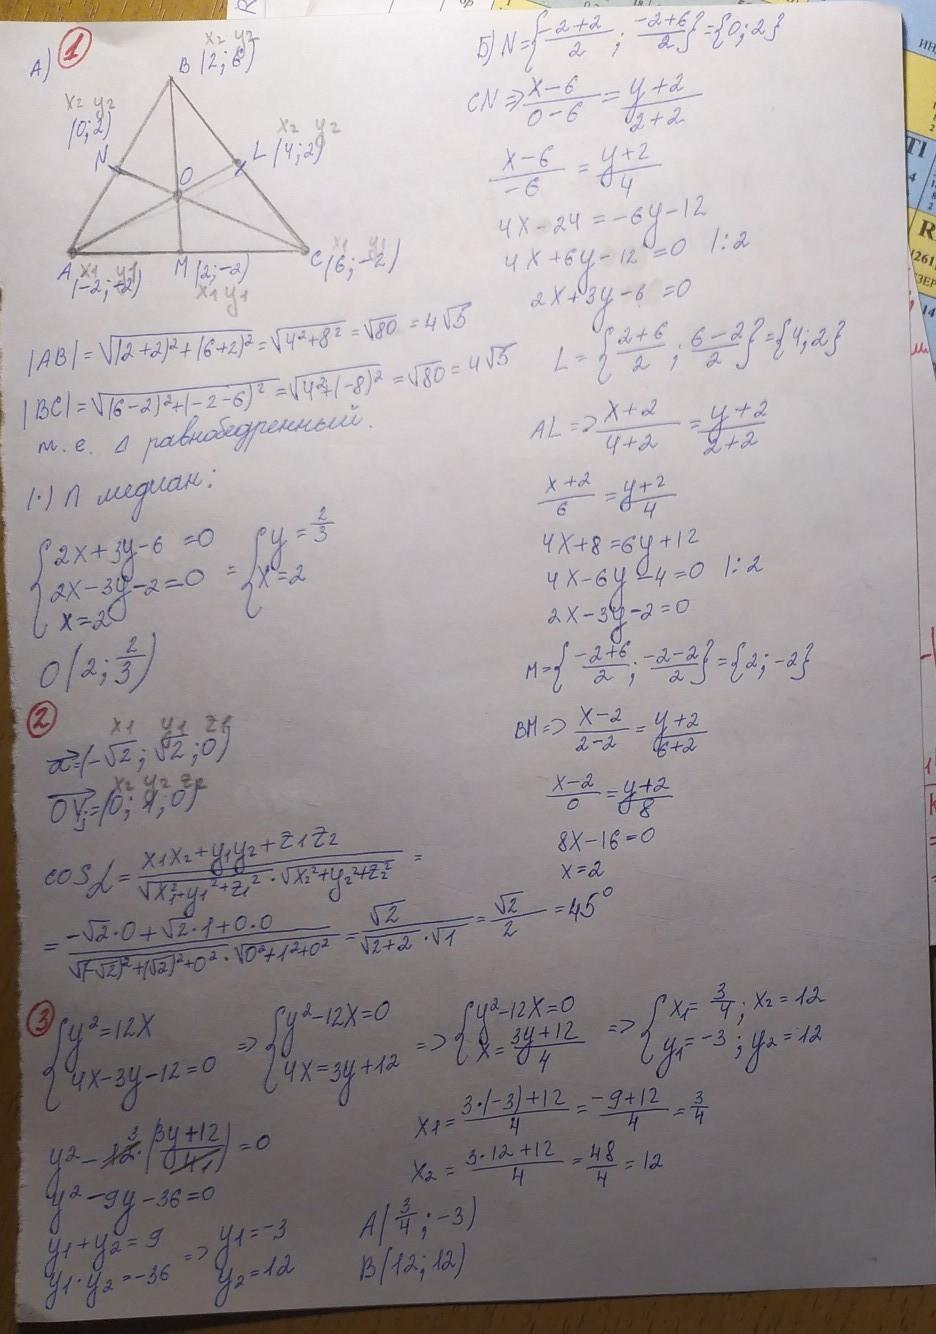 1
А)
x₂ y₂
B(2;6)
x₂ y₂
(0;2)
N
x₂ y₂
L(4;2)
O
A x₁ y₁
(-2;-2)
M(2;-2)
x₁ y₁
x₁ y₁
C(6;-2)
|AB| = √((2+2)²+(6+2)²) = √(4²+8²) = √80 = 4√5
|BC| = √((6-2)²+(-2-6)²) = √(4²+(-8)²) = √80 = 4√5
т.е. Δ равнобедренный.
(·) ∩ медиан:
{2x+3y-6=0
{2x-3y-2=0
{x=2
= {y=2/3
{x=2
O(2; 2/3)
Б) N={(-2+2)/2 ; (-2+6)/2}={0;2}
CN => (x-6)/(0-6) = (y+2)/(2+2)
(x-6)/(-6) = (y+2)/4
4x-24=-6y-12
4x+6y-12=0 |:2
2x+3y-6=0
L = {(2+6)/2 ; (6-2)/2}={4;2}
AL => (x+2)/(4+2) = (y+2)/(2+2)
(x+2)/6 = (y+2)/4
4x+8=6y+12
4x-6y-4=0 |:2
2x-3y-2=0
M={(-2+6)/2 ; (-2-2)/2}={2;-2}
BM=> (x-2)/(2-2) = (y+2)/(6+2)
(x-2)/0 = (y+2)/8
8x-16=0
x=2
2
x₁ y₁ z₁
a=(-√2; √2; 0)
x₂ y₂ z₂
OY=(0; 1; 0)
cos α = (x₁x₂+y₁y₂+z₁z₂)/(√(x₁²+y₁²+z₁²)·√(x₂²+y₂²+z₂²)) =
= (-√2·0+√2·1+0·0)/(√((-√2)²+(√2)²+0²)·√(0²+1²+0²)) = √2/(√(2+2)·√1) = √2/2 = 45°
3
{y²=12x
{4x-3y-12=0
=> {y²-12x=0
{4x=3y+12
=> {y²-12x=0
{x=(3y+12)/4
=> {x₁=3/4; x₂=12
{y₁=-3; y₂=12
y²-12·((3y+12)/4)=0
y²-9y-36=0
y₁+y₂=9
y₁·y₂=-36
=> y₁=-3
y₂=12
x₁=(3·(-3)+12)/4=(-9+12)/4=3/4
x₂=(3·12+12)/4=48/4=12
A(3/4; -3)
B(12; 12)